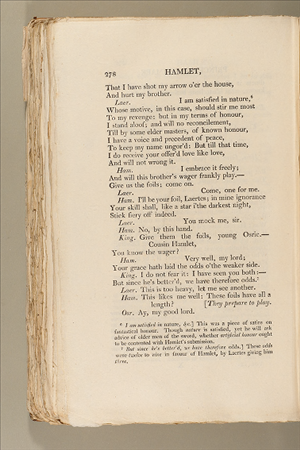 278 HAMLET,
That I have shot my arrow o'er the house,
And hurt my brother.
Laer. I am satisfied in nature,⁶
Whose motive, in this case, should stir me most
To my revenge: but in my terms of honour,
I stand aloof; and will no reconcilement,
Till by some elder masters, of known honour,
I have a voice and precedent of peace,
To keep my name ungor'd: But till that time,
I do receive your offer'd love like love,
And will not wrong it.
Ham. I embrace it freely;
And will this brother's wager frankly play.—
Give us the foils; come on.
Laer. Come, one for me.
Ham. I'll be your foil, Laertes; in mine ignorance
Your skill shall, like a star i'the darkest night,
Stick fiery off indeed.
Laer. You mock me, sir.
Ham. No, by this hand.
King. Give them the foils, young Osric.—
Cousin Hamlet,
You know the wager?
Ham. Very well, my lord;
Your grace hath laid the odds o'the weaker side.
King. I do not fear it: I have seen you both:—
But since he's better'd, we have therefore odds.⁷
Laer. This is too heavy, let me see another.
Ham. This likes me well: These foils have all a
length? [They prepare to play.
Osr. Ay, my good lord.
⁶ I am satisfied in nature, &c.] This was a piece of satire on
fantastical honour. Though nature is satisfied, yet he will ask
advice of older men of the sword, whether artificial honour ought
to be contented with Hamlet's submission.
⁷ But since he's better'd, we have therefore odds.] These odds
were twelve to nine in favour of Hamlet, by Laertes giving him
three.